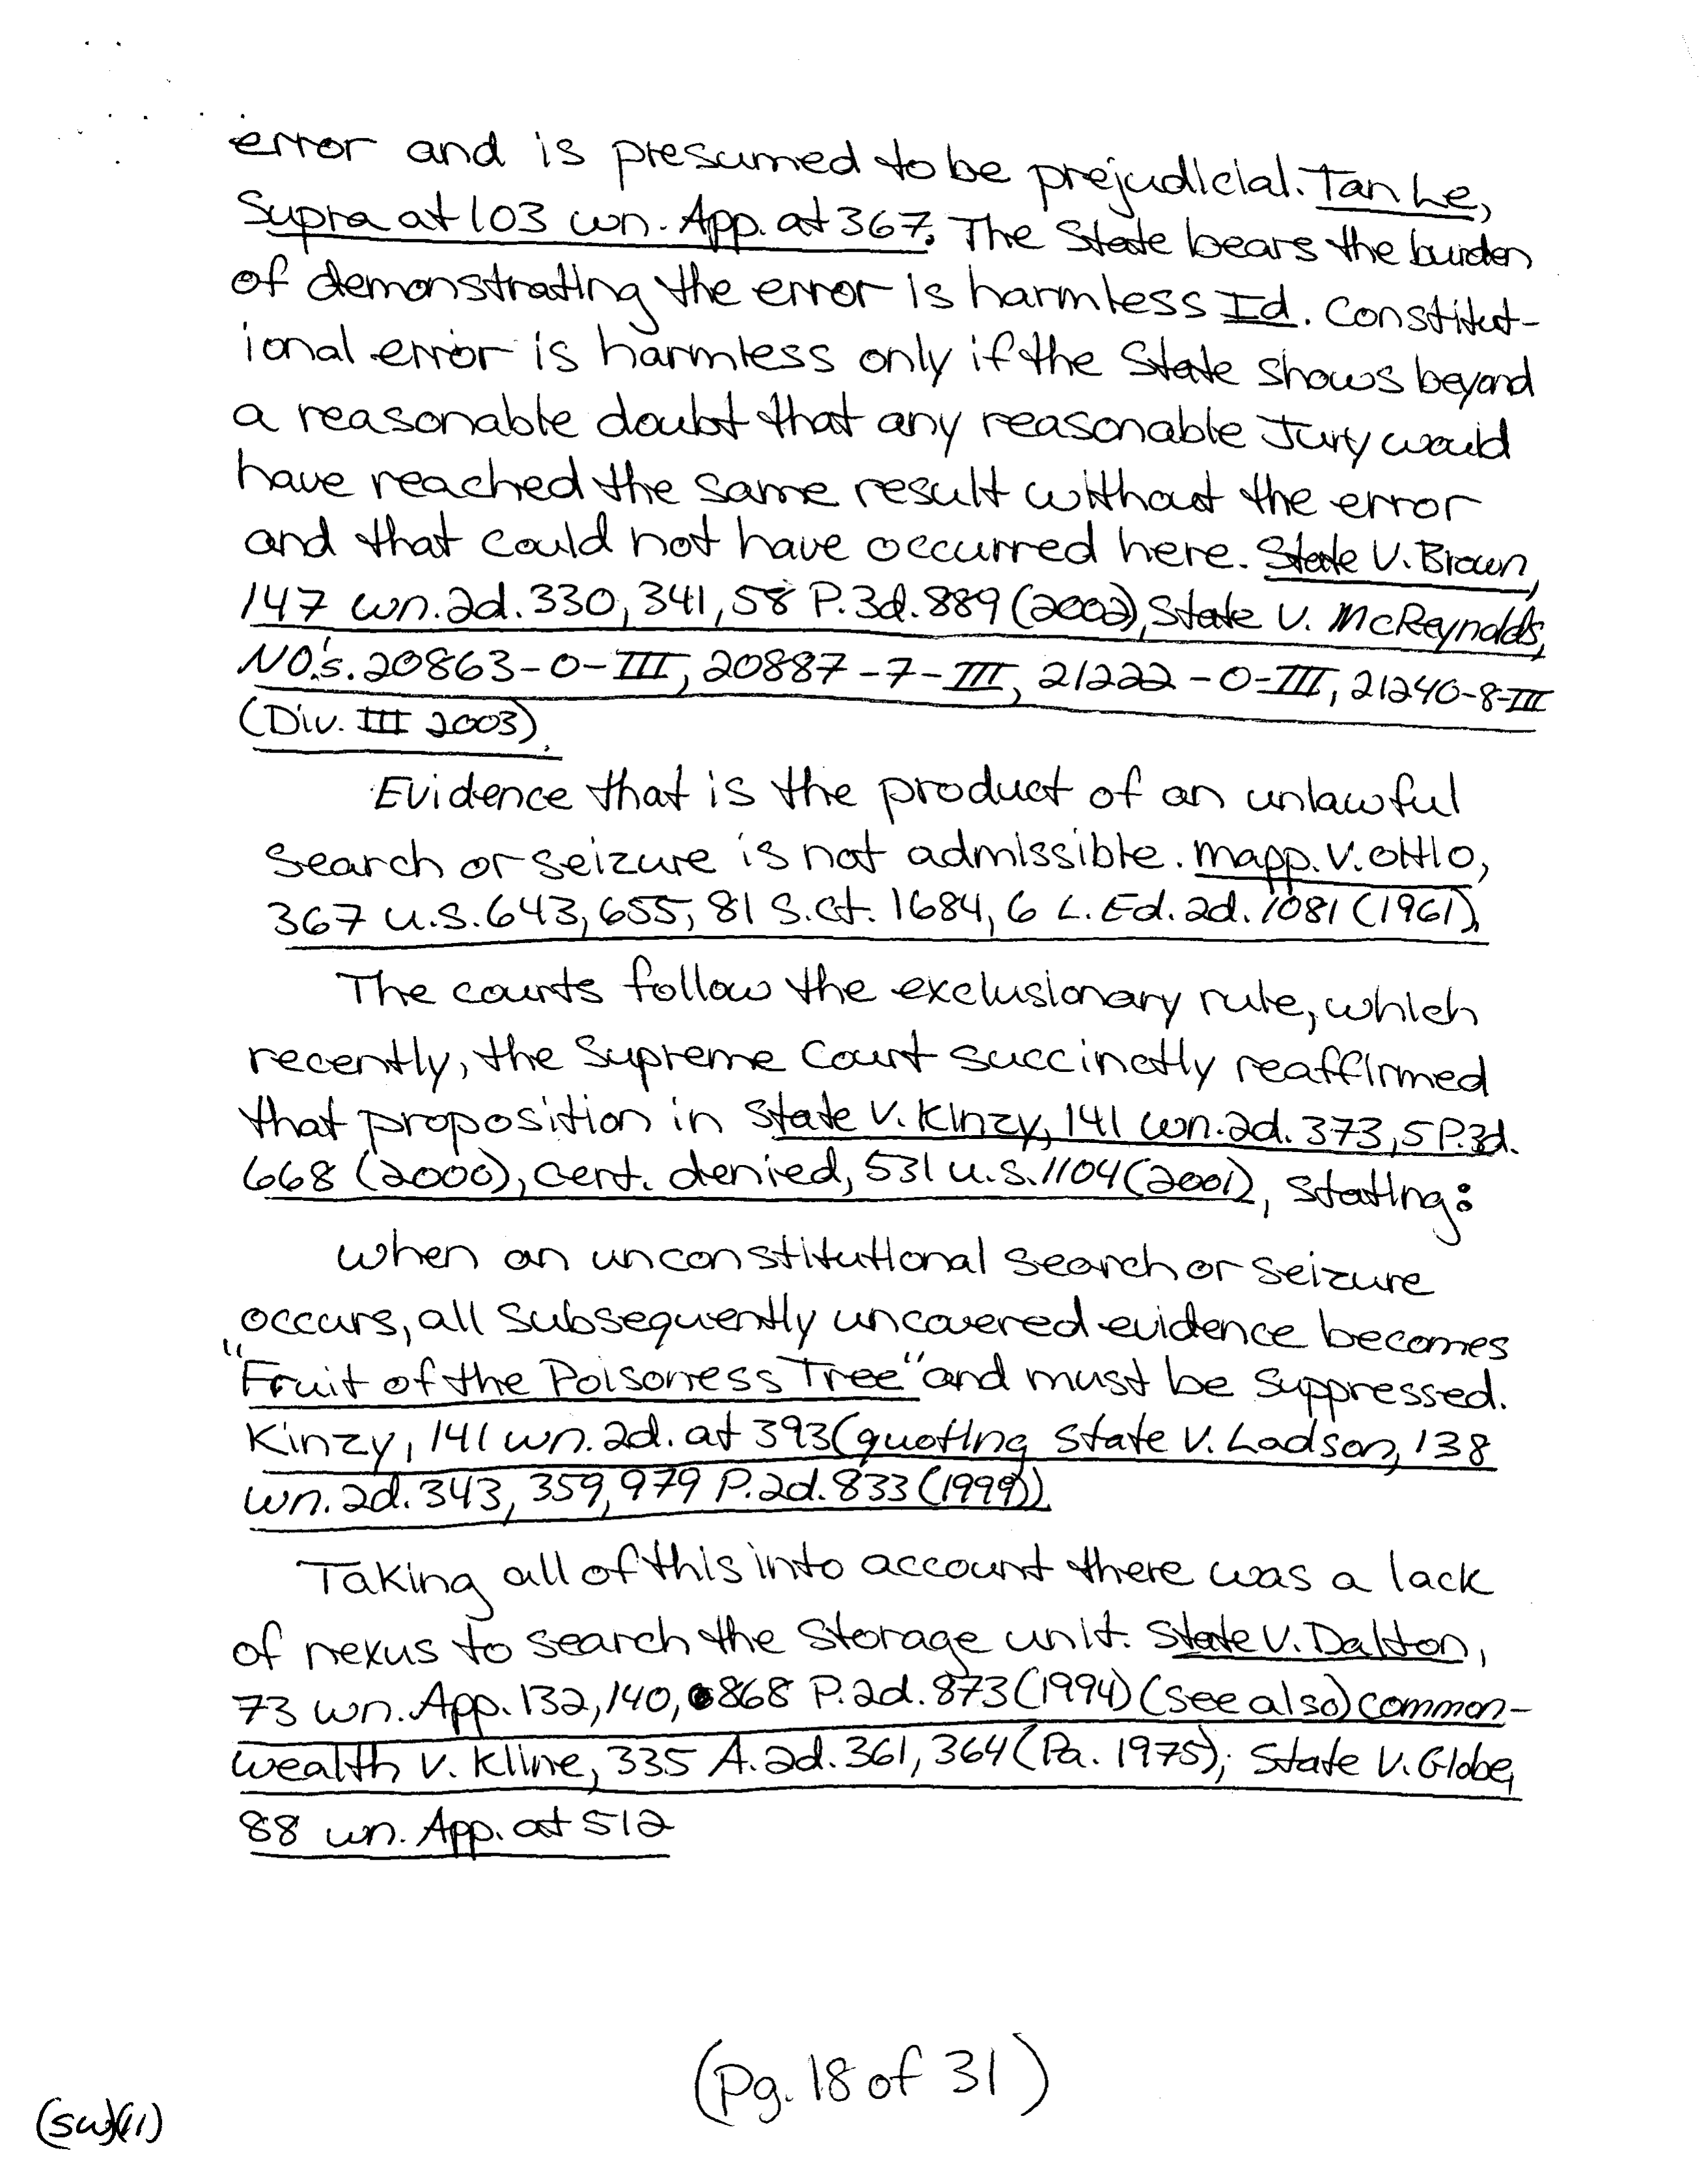 error and is presumed to be prejudicial. Tan Le,
Supra at 103 wn. App. at 367. The State bears the burden
of demonstrating the error is harmless Id. Constitut-
ional error is harmless only if the State shows beyond
a reasonable doubt that any reasonable Jury would
have reached the same result without the error
and that could not have occurred here. State V. Brown,
147 wn.2d.330,341,58 P.3d.889 (2002), State V. McReynolds,
NO.'s.20863-0-III, 20887-7-III, 21222-0-III, 21240-8-III
(Div. III 2003).
Evidence that is the product of an unlawful
Search or seizure is not admissible. mapp.V.OHIO,
367 U.S.643,655,81 S.Ct. 1684,6 L.Ed.2d.1081 (1961),
The courts follow the exclusionary rule, which
recently, the Supreme Court succinctly reaffirmed
that proposition in State V. Kinzy, 141 wn.2d.373,5P.3d.
668 (2000), cert. denied, 531 U.S.1104(2001), Stating:
when an unconstitutional search or seizure
occurs, all subsequently uncovered evidence becomes
"Fruit of the Poisoness Tree" and must be suppressed.
Kinzy, 141 wn.2d.at 393(quoting State V. Ladson, 138
wn.2d.343,359,979 P.2d.833(1999)).
Taking all of this into account there was a lack
of nexus to search the Storage unit. State V. Dalton,
73 wn.App.132,140,868 P.2d.873(1994)(see also) common-
wealth v. Kline, 335 A.2d.361,364(Pa. 1975); State V. Globe,
88 wn. App. at 512
(Pg. 18 of 31)
(SW)(11)